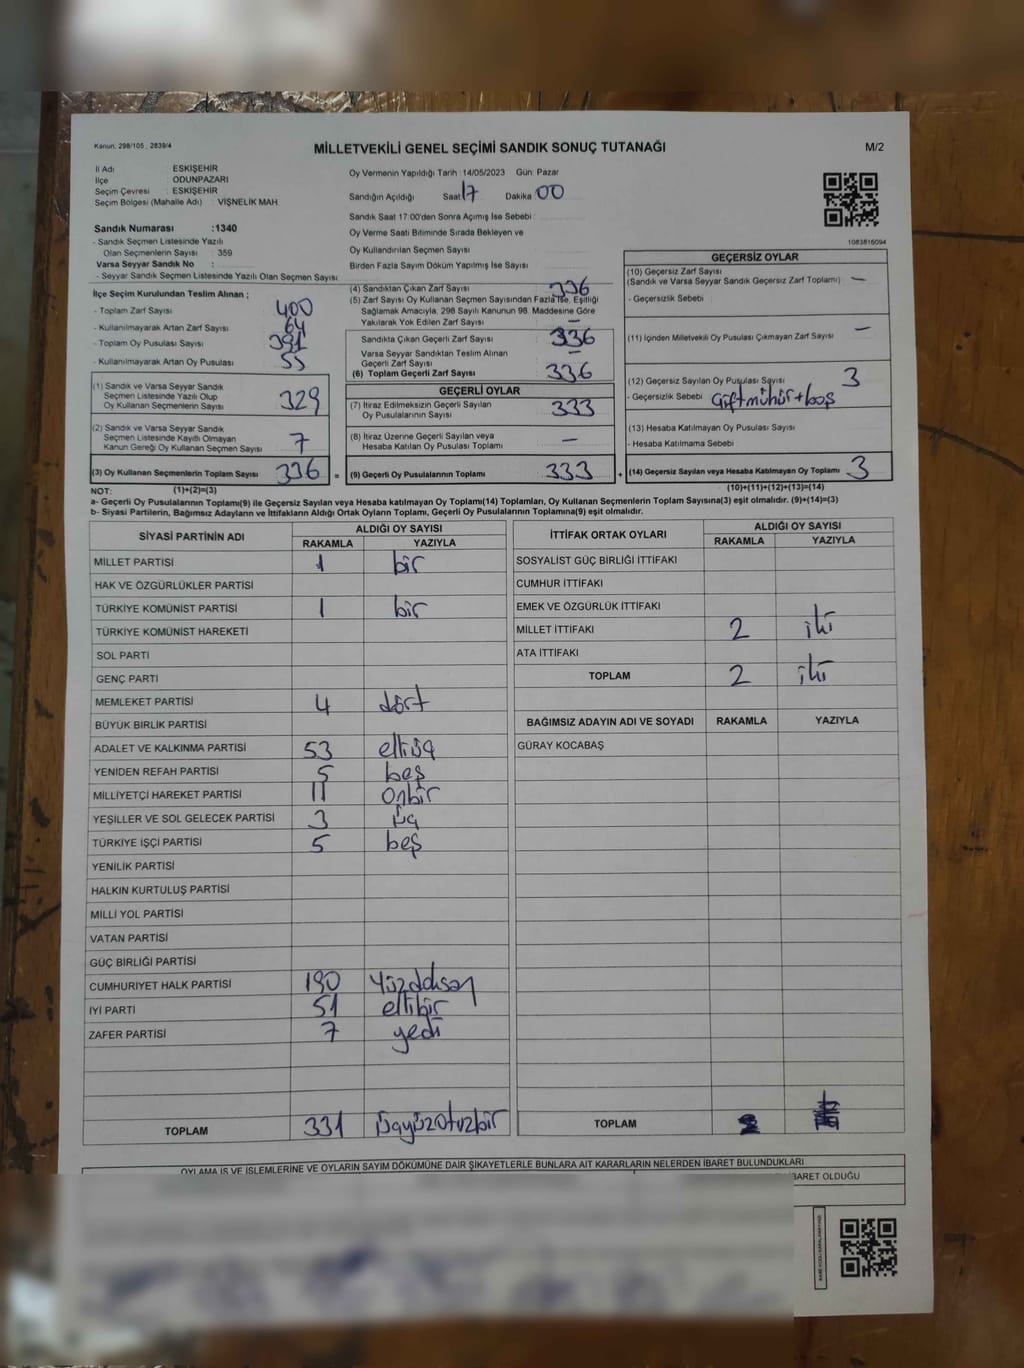 Kanun. 298/105 , 2839/4
MİLLETVEKİLİ GENEL SEÇİMİ SANDIK SONUÇ TUTANAĞI
M/2
İl Adı : ESKİŞEHİR
İlçe : ODUNPAZARI
Seçim Çevresi : ESKİŞEHİR
Seçim Bölgesi (Mahalle Adı) : VİŞNELİK MAH.
Oy Vermenin Yapıldığı Tarih :14/05/2023 Gün: Pazar
Sandığın Açıldığı Saat 17 Dakika 00
Sandık Saat 17:00'den Sonra Açımış İse Sebebi :
Oy Verme Saati Bitiminde Sırada Bekleyen ve
Oy Kullandırılan Seçmen Sayısı
Birden Fazla Sayım Döküm Yapılmış İse Sayısı
1083816094
Sandık Numarası :1340
- Sandık Seçmen Listesinde Yazılı
Olan Seçmenlerin Sayısı : 359
Varsa Seyyar Sandık No :
- Seyyar Sandık Seçmen Listesinde Yazılı Olan Seçmen Sayısı:
İlçe Seçim Kurulundan Teslim Alınan ;
- Toplam Zarf Sayısı : 400
- Kullanılmayarak Artan Zarf Sayısı : 64
- Toplam Oy Pusulası Sayısı : 391
- Kullanılmayarak Artan Oy Pusulası : 55
(1) Sandık ve Varsa Seyyar Sandık
Seçmen Listesinde Yazılı Olup
Oy Kullanan Seçmenlerin Sayısı : 329
(2) Sandık ve Varsa Seyyar Sandık
Seçmen Listesinde Kayıtlı Olmayan
Kanun Gereği Oy Kullanan Seçmen Sayısı : 7
(3) Oy Kullanan Seçmenlerin Toplam Sayısı : 336 =
(4) Sandıktan Çıkan Zarf Sayısı : 336
(5) Zarf Sayısı Oy Kullanan Seçmen Sayısından Fazla İse, Eşitliği
Sağlamak Amacıyla, 298 Sayılı Kanunun 98. Maddesine Göre
Yakılarak Yok Edilen Zarf Sayısı : —
Sandıkta Çıkan Geçerli Zarf Sayısı : 336
Varsa Seyyar Sandıktan Teslim Alınan
Geçerli Zarf Sayısı : —
(6) Toplam Geçerli Zarf Sayısı : 336
GEÇERLİ OYLAR
(7) İtiraz Edilmeksizin Geçerli Sayılan
Oy Pusulalarının Sayısı : 333
(8) İtiraz Üzerine Geçerli Sayılan veya
Hesaba Katılan Oy Pusulası Toplamı : —
(9) Geçerli Oy Pusulalarının Toplamı : 333 +
GEÇERSİZ OYLAR
(10) Geçersiz Zarf Sayısı
(Sandık ve Varsa Seyyar Sandık Geçersiz Zarf Toplamı) : —
- Geçersizlik Sebebi :
(11) İçinden Milletvekili Oy Pusulası Çıkmayan Zarf Sayısı : —
(12) Geçersiz Sayılan Oy Pusulası Sayısı : 3
- Geçersizlik Sebebi : Çift mühür+boş
(13) Hesaba Katılmayan Oy Pusulası Sayısı :
- Hesaba Katılmama Sebebi :
(14) Geçersiz Sayılan veya Hesaba Katılmayan Oy Toplamı : 3
NOT: (1)+(2)=(3)
(10)+(11)+(12)+(13)=(14)
a- Geçerli Oy Pusulalarının Toplamı(9) ile Geçersiz Sayılan veya Hesaba katılmayan Oy Toplamı(14) Toplamları, Oy Kullanan Seçmenlerin Toplam Sayısına(3) eşit olmalıdır. (9)+(14)=(3)
b- Siyasi Partilerin, Bağımsız Adayların ve İttifakların Aldığı Ortak Oyların Toplamı, Geçerli Oy Pusulalarının Toplamına(9) eşit olmalıdır.
SİYASİ PARTİNİN ADI
ALDIĞI OY SAYISI
RAKAMLA YAZIYLA
MİLLET PARTİSİ 1 bir
HAK VE ÖZGÜRLÜKLER PARTİSİ
TÜRKİYE KOMÜNİST PARTİSİ 1 bir
TÜRKİYE KOMÜNİST HAREKETİ
SOL PARTİ
GENÇ PARTİ
MEMLEKET PARTİSİ 4 dört
BÜYÜK BİRLİK PARTİSİ
ADALET VE KALKINMA PARTİSİ 53 elliüç
YENİDEN REFAH PARTİSİ 5 beş
MİLLİYETÇİ HAREKET PARTİSİ 11 onbir
YEŞİLLER VE SOL GELECEK PARTİSİ 3 üç
TÜRKİYE İŞÇİ PARTİSİ 5 beş
YENİLİK PARTİSİ
HALKIN KURTULUŞ PARTİSİ
MİLLİ YOL PARTİSİ
VATAN PARTİSİ
GÜÇ BİRLİĞİ PARTİSİ
CUMHURİYET HALK PARTİSİ 190 yüzdoksan
İYİ PARTİ 51 ellibir
ZAFER PARTİSİ 7 yedi
TOPLAM 331 üçyüzotuzbir
İTTİFAK ORTAK OYLARI
ALDIĞI OY SAYISI
RAKAMLA YAZIYLA
SOSYALİST GÜÇ BİRLİĞİ İTTİFAKI
CUMHUR İTTİFAKI
EMEK VE ÖZGÜRLÜK İTTİFAKI
MİLLET İTTİFAKI 2 iki
ATA İTTİFAKI
TOPLAM 2 iki
BAĞIMSIZ ADAYIN ADI VE SOYADI RAKAMLA YAZIYLA
GÜRAY KOCABAŞ
TOPLAM
OYLAMA İŞ VE İŞLEMLERİNE VE OYLARIN SAYIM DÖKÜMÜNE DAİR ŞİKAYETLERLE BUNLARA AİT KARARLARIN NELERDEN İBARET BULUNDUKLARI
İBARET OLDUĞU